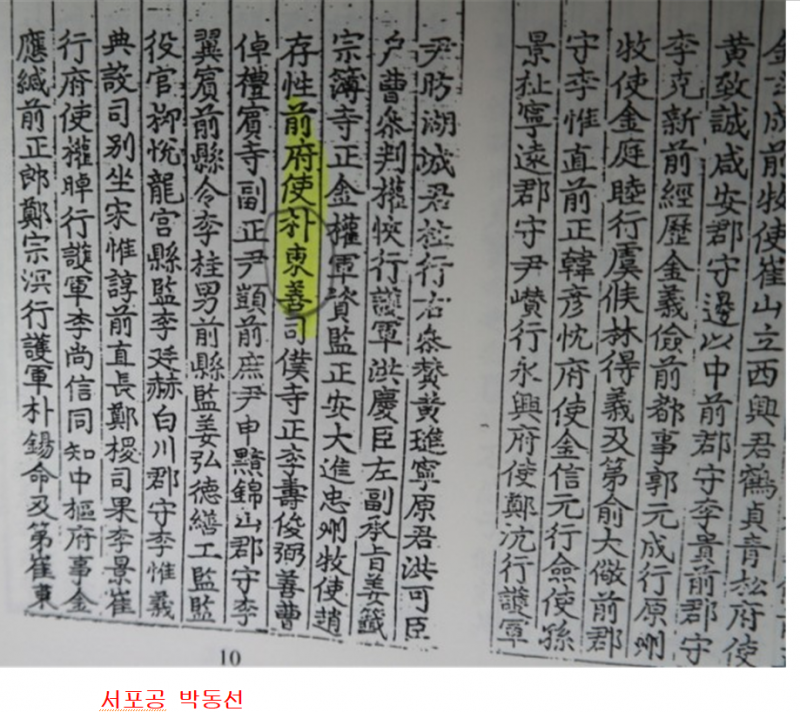 成前牧使崔山立西興君鶴貞青松府使
黃致誠咸安郡守邊以中前郡守李貴前郡守
李克新前經歷金義儉前都事郭元成行原州
牧使金庭睦行虞候林得義及第俞大儆前郡
守李惟直前正韓彦忱府使金信元行僉使孫
景祉寧遠郡守尹巑行永興府使鄭沆行護軍
尹昉湖城君柱行右參贊黃璡寧原君洪可臣
戶曹參判權悏行護軍洪慶臣左副承旨姜籤
宗簿寺正金權軍資監正安大進忠州牧使趙
存性前府使朴東善司僕寺正李壽俊弼善曹
倬禮賓寺副正尹顗前庶尹申黯錦山郡守李
翼賓前縣令李柱男前縣監姜弘德繕工監監
役官柳悅龍宮縣監李廷赫白川郡守李惟義
典設司別坐宋惟諄前直長鄭椶司果李景崔
行府使權晫行護軍李尚信同知中樞府事金
應緘前正郎鄭宗溟行護軍朴錫命及第崔東
10
서포공 박동선